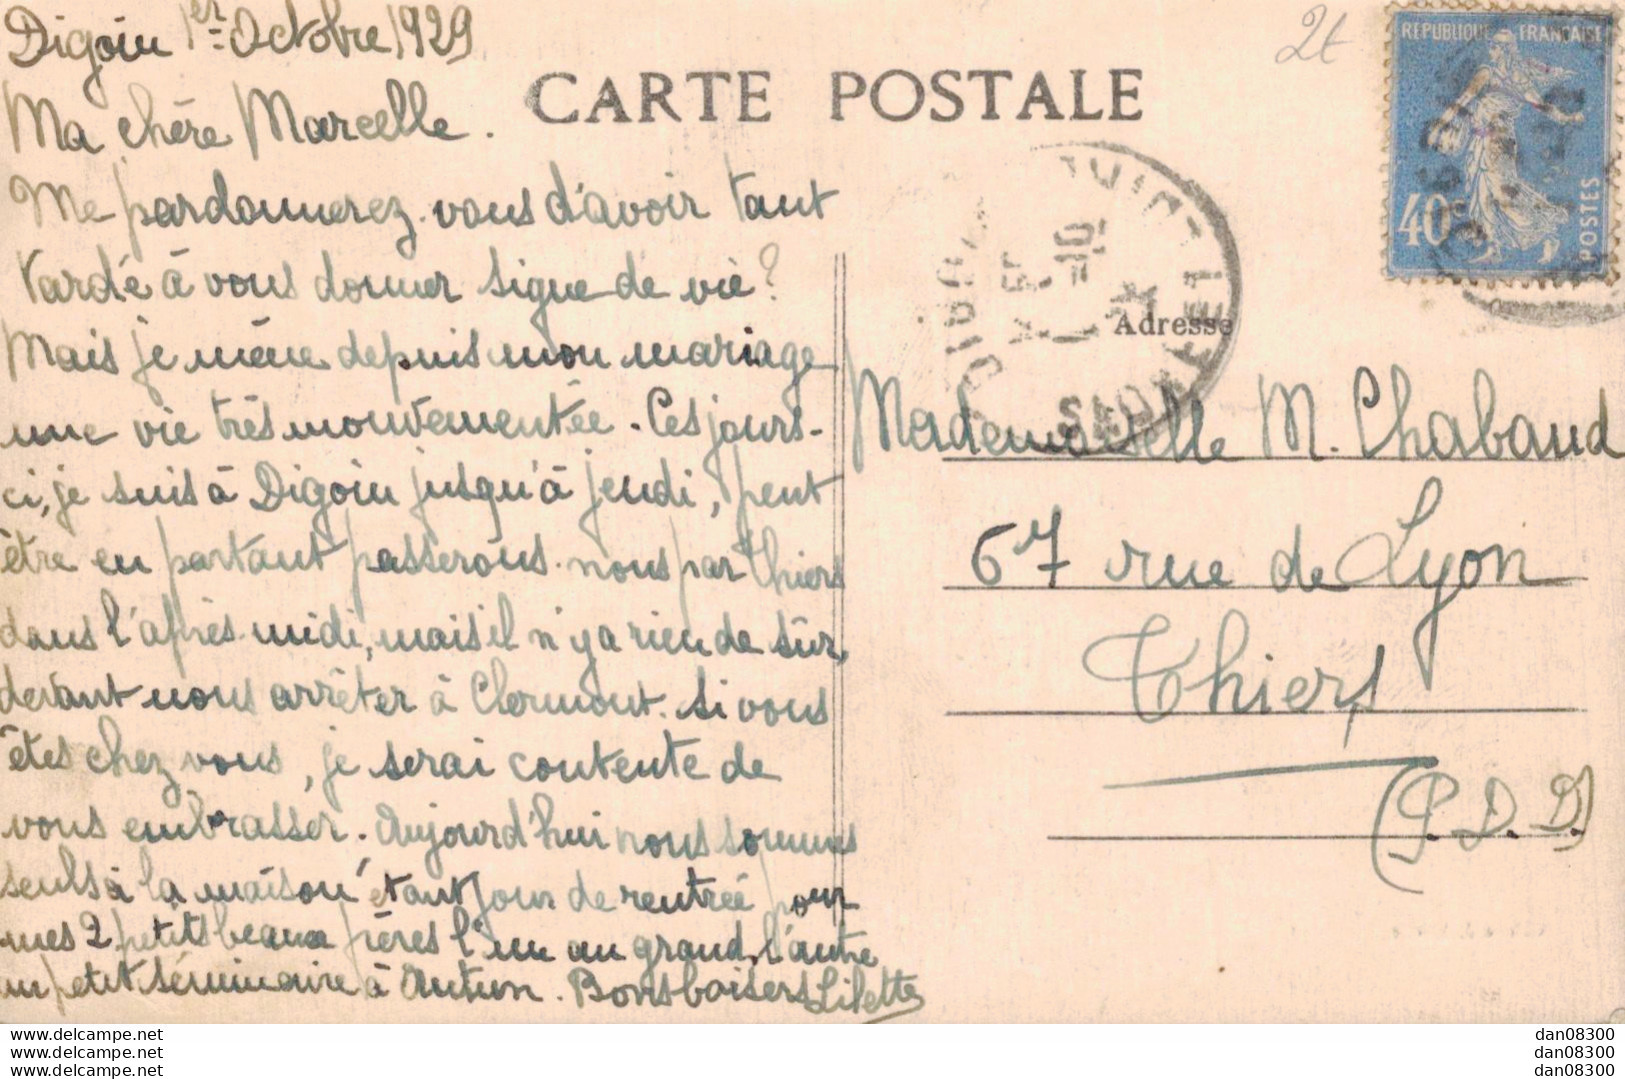 Digoin 1er Octobre 1929
2t
RÉPUBLIQUE FRANÇAISE
40
POSTES
CARTE POSTALE
Ma chère Marcelle.
Me pardonnerez-vous d'avoir tant
tardé à vous donner signe de vie?
Mais je mène depuis mon mariage
une vie très mouvementée. Ces jours-
ci, je suis à Digoin jusqu'à jeudi, peut
être en partant passerons-nous par Thiers
dans l'après-midi, mais il n'y a rien de sûr,
devant nous arrêter à Clermont. Si vous
êtes chez vous, je serai contente de
vous embrasser. Aujourd'hui nous sommes
seuls à la maison étant jour de rentrée pour
mes 2 petits beaux frères l'un au grand, l'autre
au petit séminaire à Autun. Bons baisers Lilette
DIGOIN
SAÔNE-ET-L
Adresse
Mademoiselle M. Chabaud
67 rue de Lyon
Thiers
(P.D.D.)
www.delcampe.net
www.delcampe.net
www.delcampe.net
dan08300
dan08300
dan08300